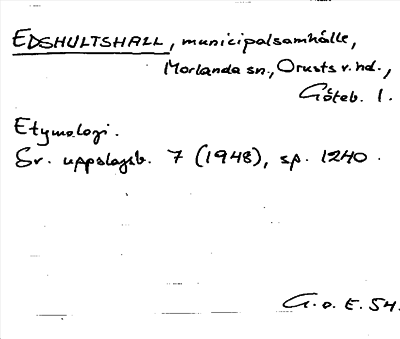 EDSHULTSHALL, municipalsamhälle,
Morlanda sn., Orusts v. hd.,
Göteb. l.
Etymologi.
Sv. uppslagsb. 7 (1948), sp. 1240.
G. o. E. 54.